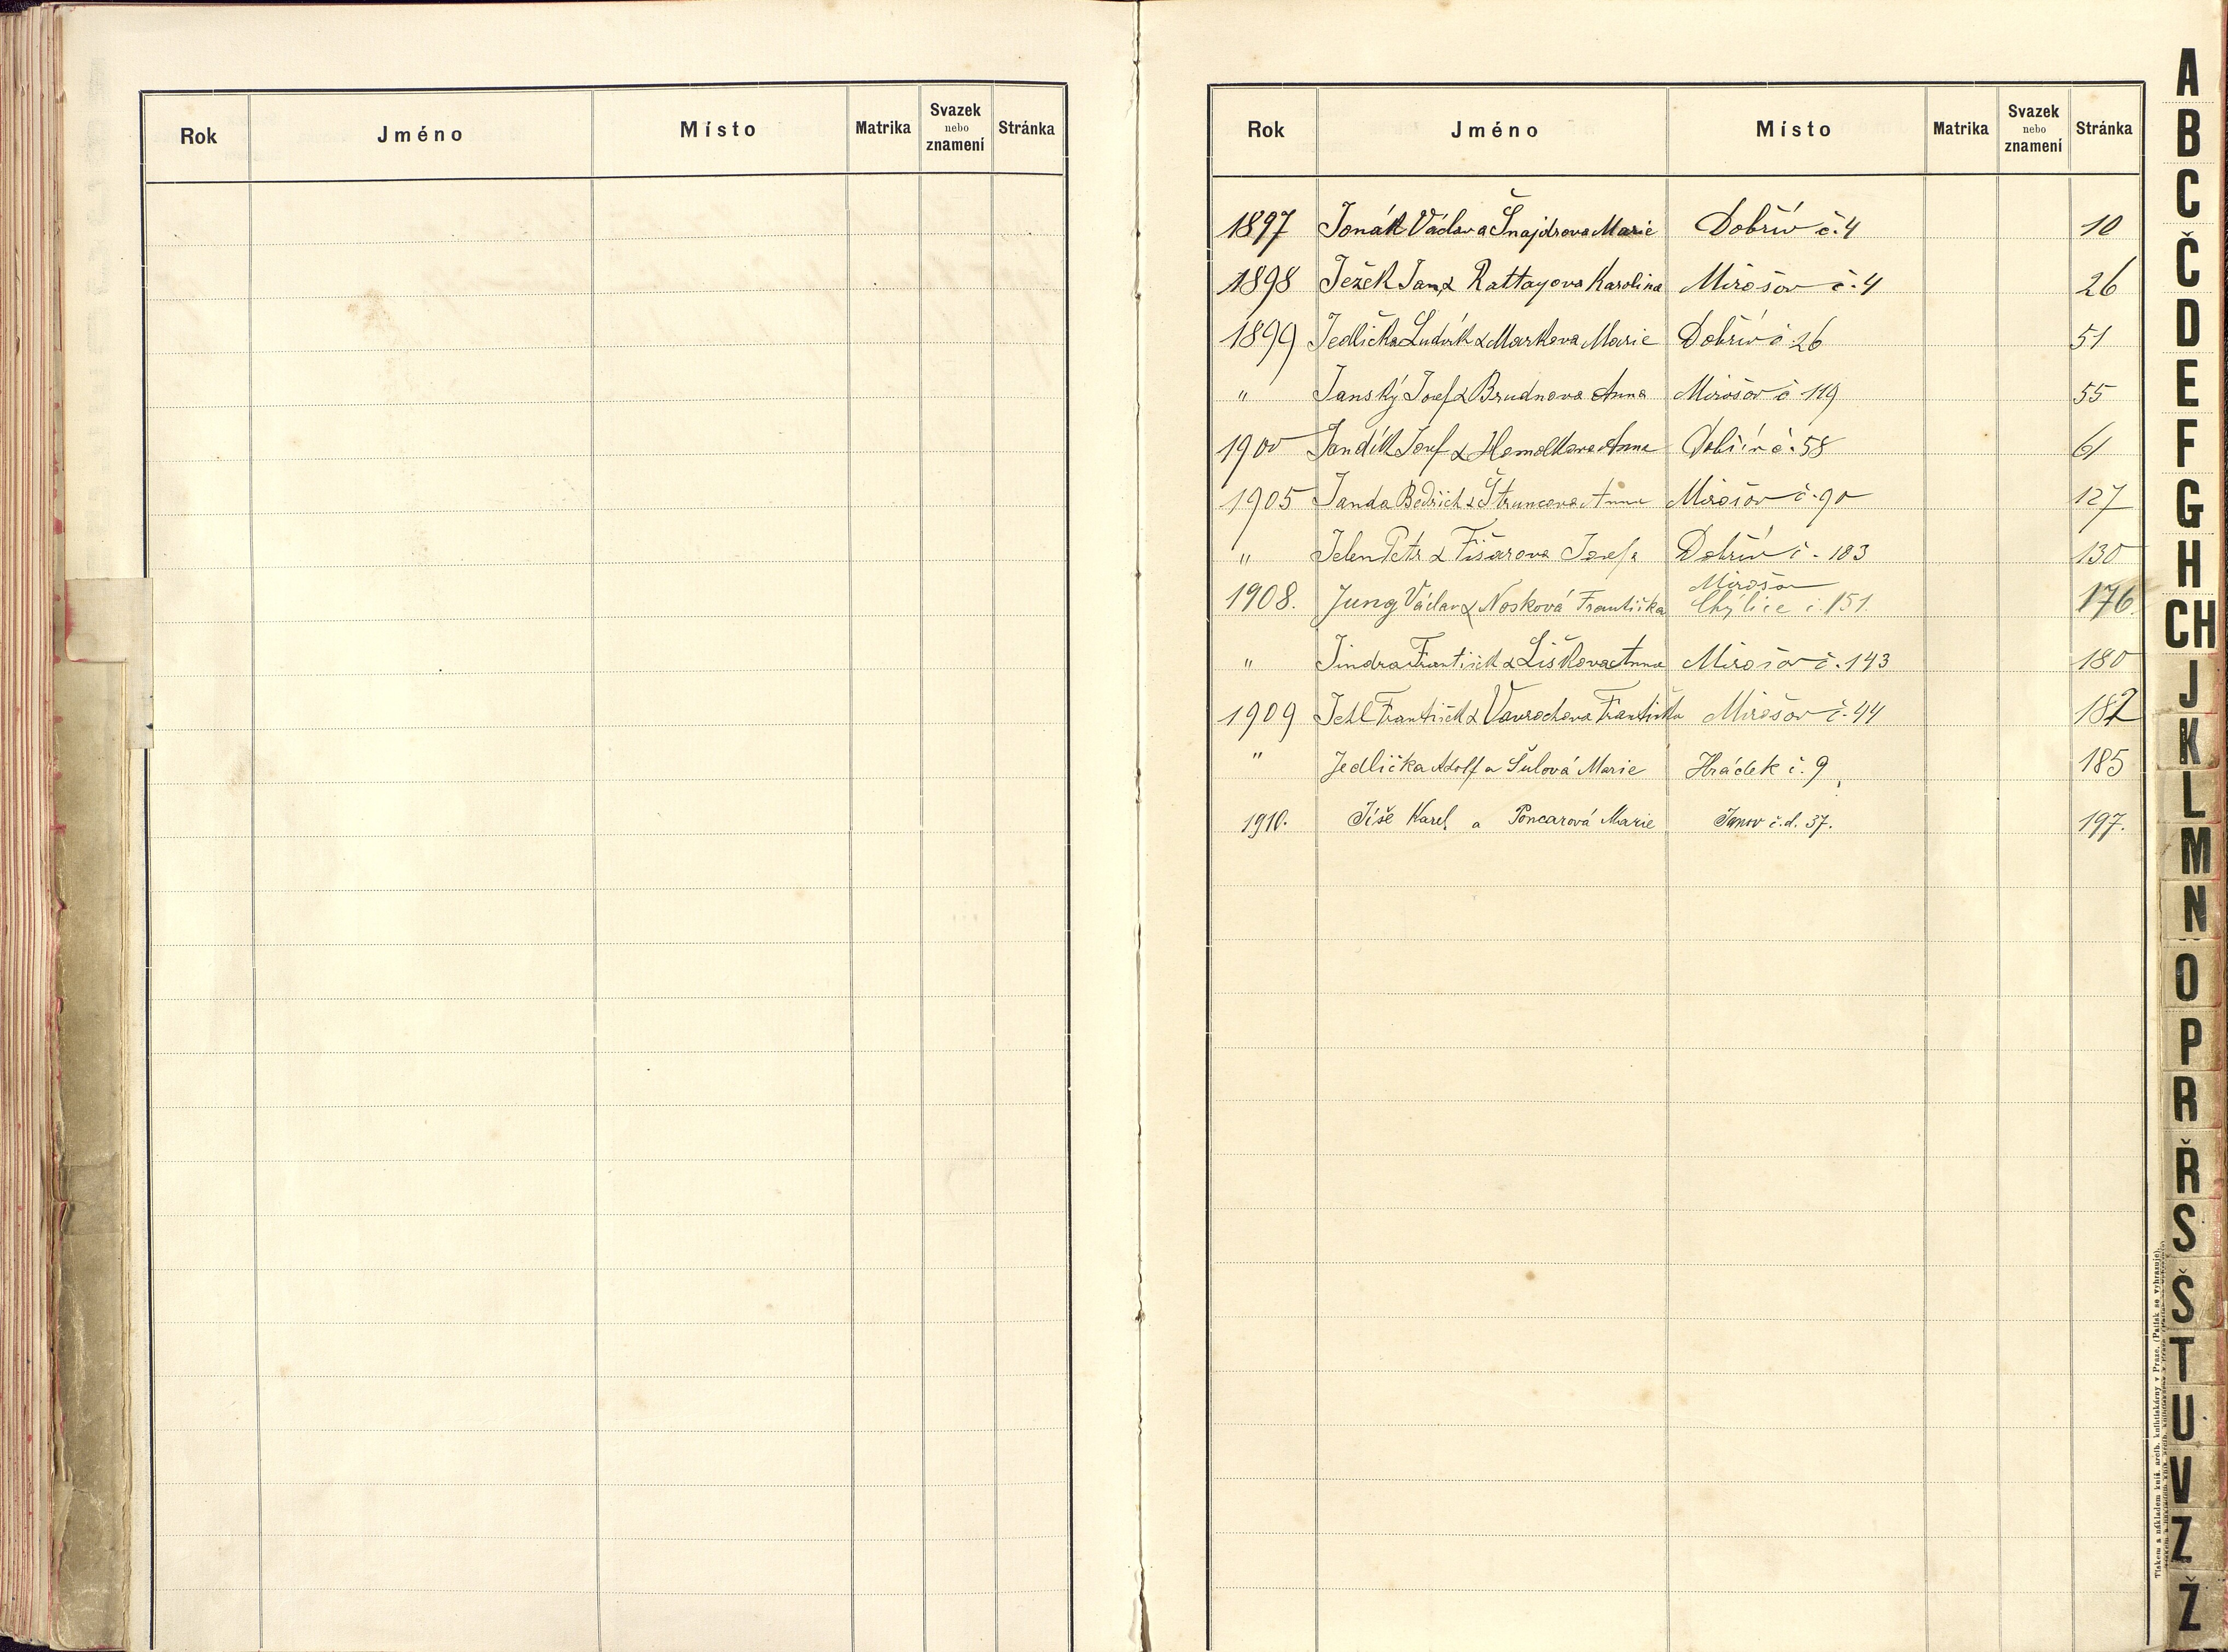 Rok Jméno Místo Matrika Svazek nebo znamení Stránka
Rok Jméno Místo Matrika Svazek nebo znamení Stránka
1897 Jonák Václav a Šnajdrova Marie Dobřív č. 4 10
1898 Ježek Jan & Rattayova Karolina Mirošov č. 4 26
1899 Jedlička Ludvík & Markova Marie Dobřív č 26 51
" Janský Josef & Brudnova Anna Mirošov č 119 55
1900 Jandík Josef & Homolkova Anna Dobřív č. 58 61
1905 Janda Bedřich & Štruncova Anna Mirošov č. 90 127
" Jelen Petr & Fišarova Josefa Dobřív č. 183 130
Mirošov
1908. Jung Václav & Nosková Františka č. 151. 176
" Jindra František & Liškova Anna Mirošov č. 143 180
1909 Jehl František & Vavrochova Františka Mirošov č. 44 182
" Jedlička Adolf a Šulová Marie Hrádek č. 9 185
1910. Jíše Karel a Poncarová Marie Janov č.d. 37. 197.
A
B
C
Č
D
E
F
G
H
CH
J
K
L
M
N
O
P
R
Ř
S
Š
T
U
V
Z
Ž